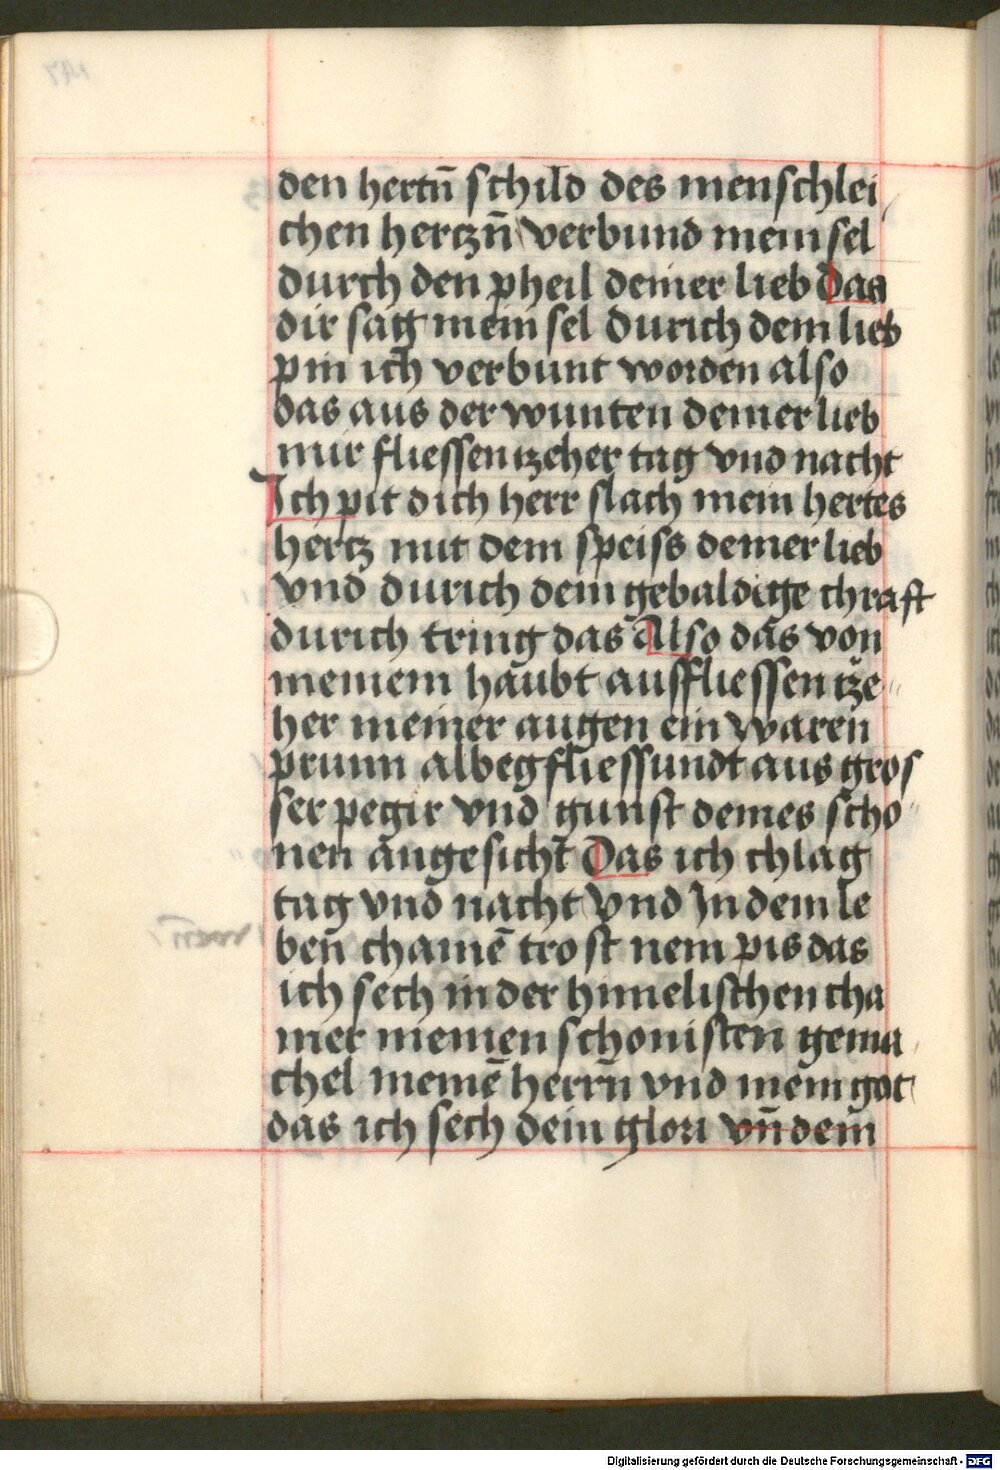 den hertñ schild des menschlei
chen hertzñ verbund mein sel
durch den pheil deiner lieb Das
dir sag mein sel durich dein lieb
pin ich verbunt worden also
das aus der wunten deiner lieb
mir fliessen tzeher tag vnd nacht
Ich pit dich herr slach mein hertes
hertz mit dem speiss deiner lieb
vnd durich dein gebaldige chraft
durich tring das Also das von
meinem haubt ausfliessen tze
her meiner augen ein waren
prunn albegfliessundt aus gros
ser pegir vnd gunst deines scho
nen angesicht Das ich chlag
tag vnd nacht vnd In dem le
beñ chainē trost nem pis das
ich sech in der himelischen cha
mer meinen schonisten gema
chel meinē herrñ vnd mein got
das ich sech dein glori vñ dein
Digitalisierung gefördert durch die Deutsche Forschungsgemeinschaft - DFG